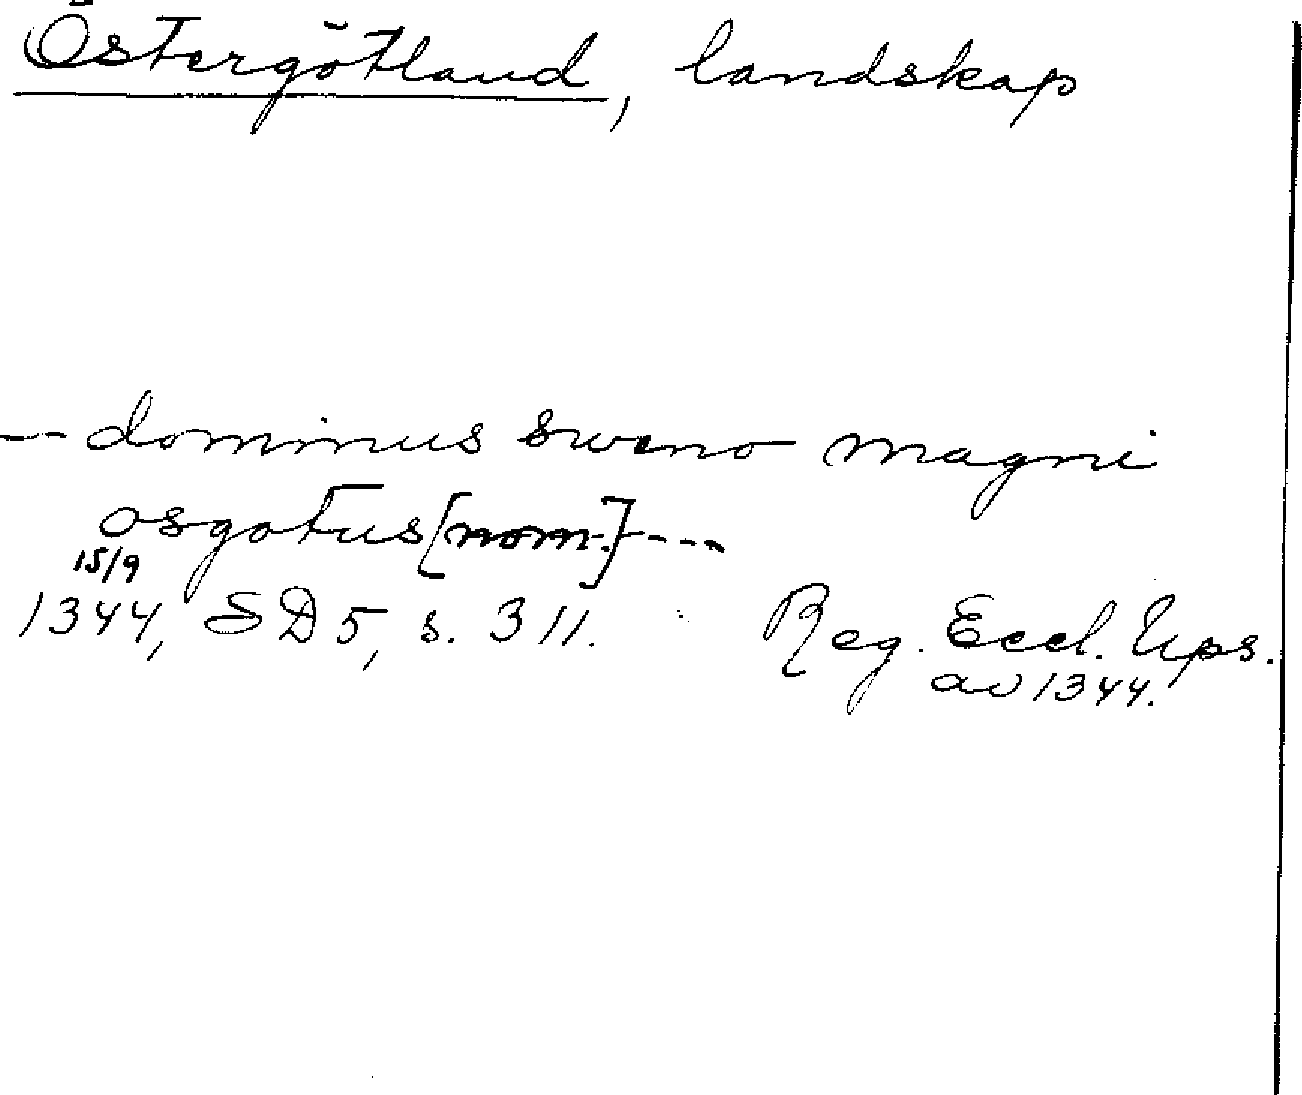 Östergötland, landskap
--- dominus sweno magni
osgotus [nom.] ---
15/9
1344, SD 5, s. 311. Reg. Eccl. Ups.
av 1344.